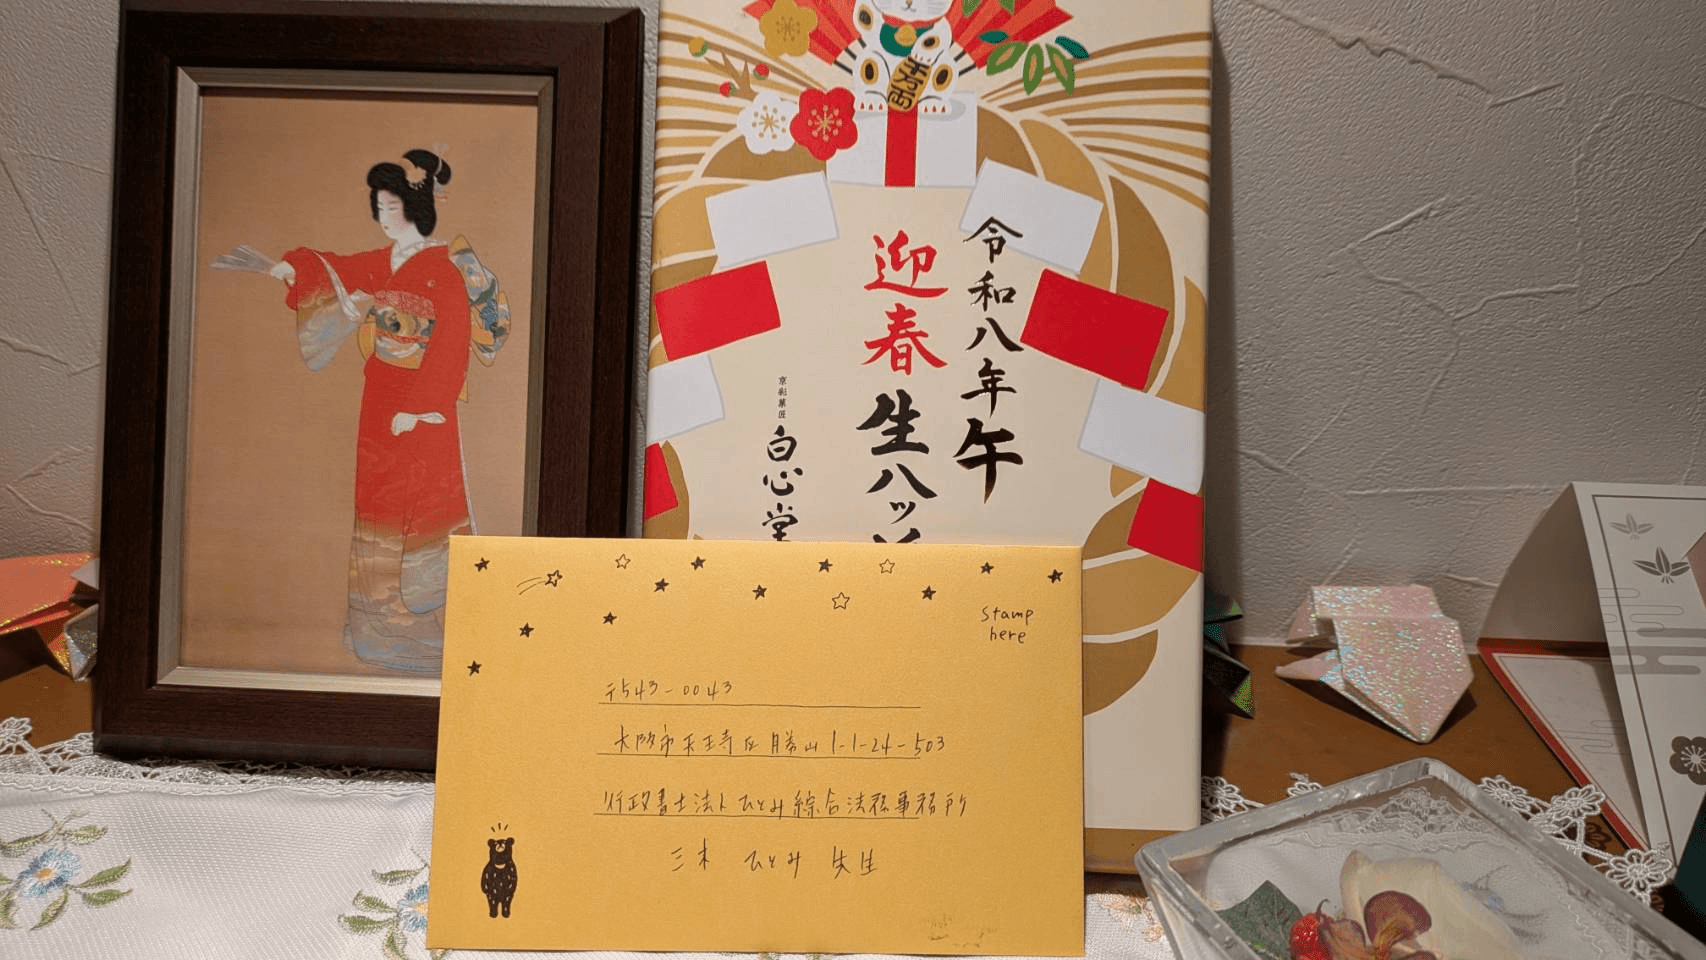 万両
令和八年午
迎春生八ッ
京彩菓匠
白心堂
Stamp
here
〒543-0043
大阪市天王寺区勝山1-1-24-503
行政書士法人ひとみ綜合法務事務所
三木 ひとみ 先生